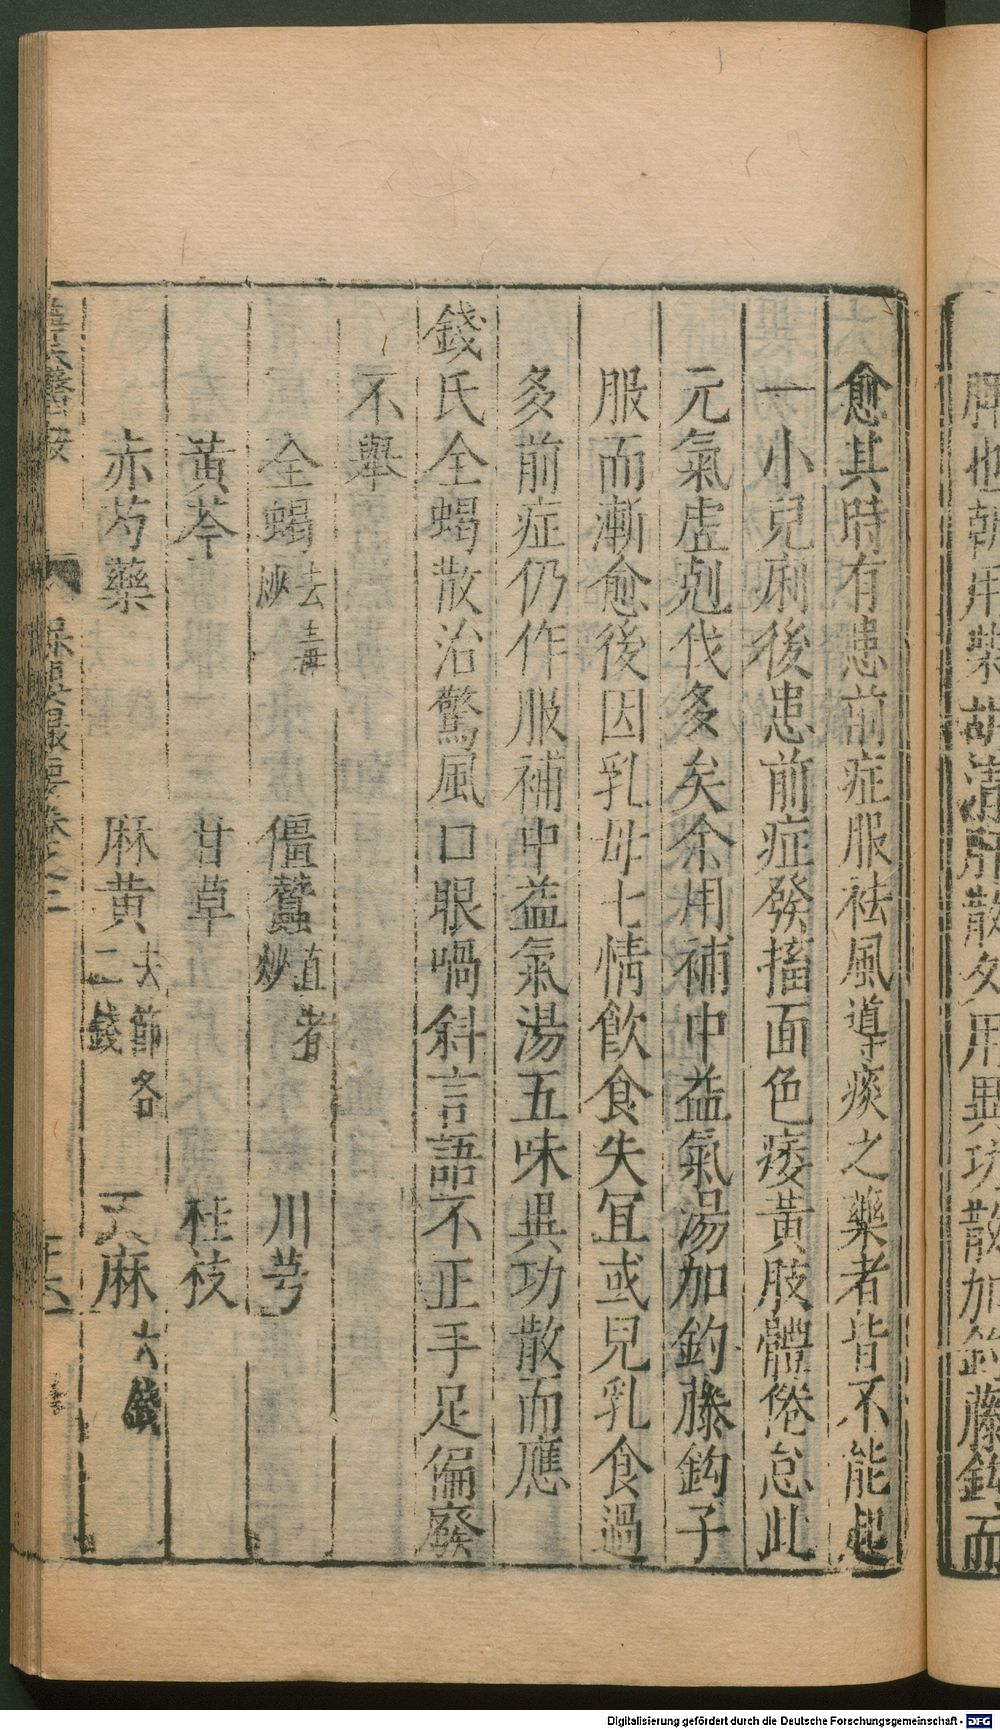 肝也朝用柴胡清肝散夕用異功散加鈎藤鈎而
愈其時有患前症服祛風導痰之藥者皆不能起
一小兒痢後患前症發搐面色痿黃肢體倦怠此
元氣虛剋伐多矣余用補中益氣湯加鈞藤鈎子
服而漸愈後因乳母七情飲食失宜或兒乳食過
多前症仍作服補中益氣湯五味異功散而應
錢氏全蝎散治驚風口眼喎斜言語不正手足偏廢
不舉
全蝎去毒炒 僵蠶直者炒 川芎
黃芩 甘草 桂枝
赤芍藥 麻黃去節各二錢 天麻六錢
保嬰撮要卷之二
Digitalisierung gefördert durch die Deutsche Forschungsgemeinschaft - DFG